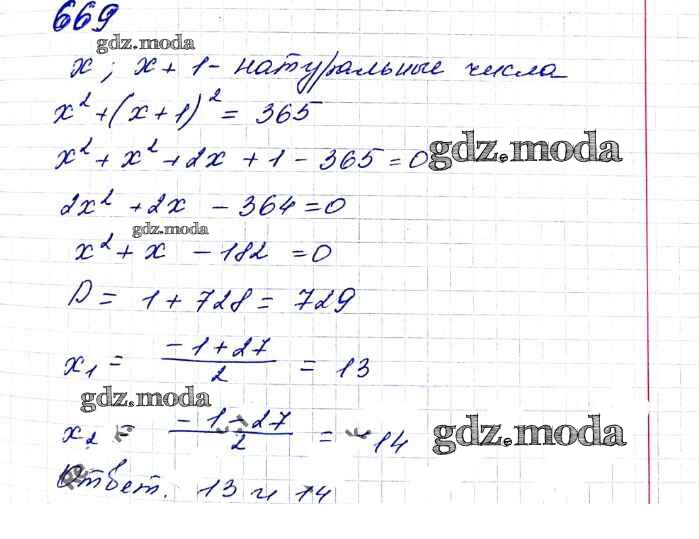 669
gdz.moda
x; x+1 - натуральные числа
x² + (x+1)² = 365
x² + x² + 2x + 1 - 365 = 0 gdz.moda
2x² + 2x - 364 = 0
gdz.moda
x² + x - 182 = 0
D = 1 + 728 = 729
x₁ = (-1+27)/2 = 13
gdz.moda
x₂ = (-1-27)/2 = -14 gdz.moda
Ответ. 13 и 14